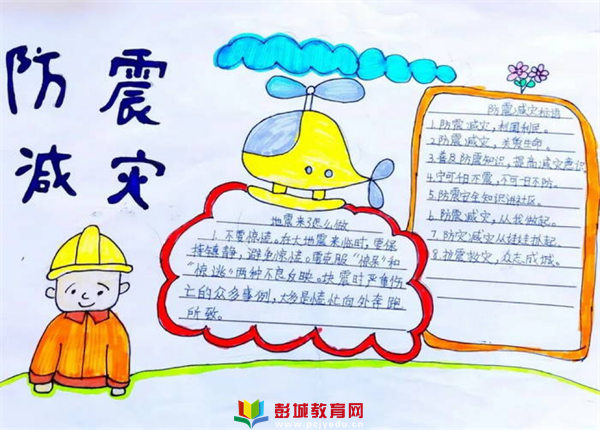 防震
减灾
地震来了怎么做
1.不要惊慌。在大地震来临时,要保
持镇静,避免惊慌。要克服“惊呆”和
“惊逃”两种不良反映。地震时严重伤
亡的众多事例,大多是慌忙向外奔跑
所致。
防震减灾标语
1.防震减灾,利国利民。
2.防震减灾,关系生命。
3.普及防震知识,提高减灾意识
4.宁可千日不震,不可一日不防。
5.防震安全知识进社区。
6.防震减灾,从我做起。
7.防灾减灾从娃娃抓起。
8.抗震救灾,众志成城。
彭城教育网
www.pcjyedu.cn